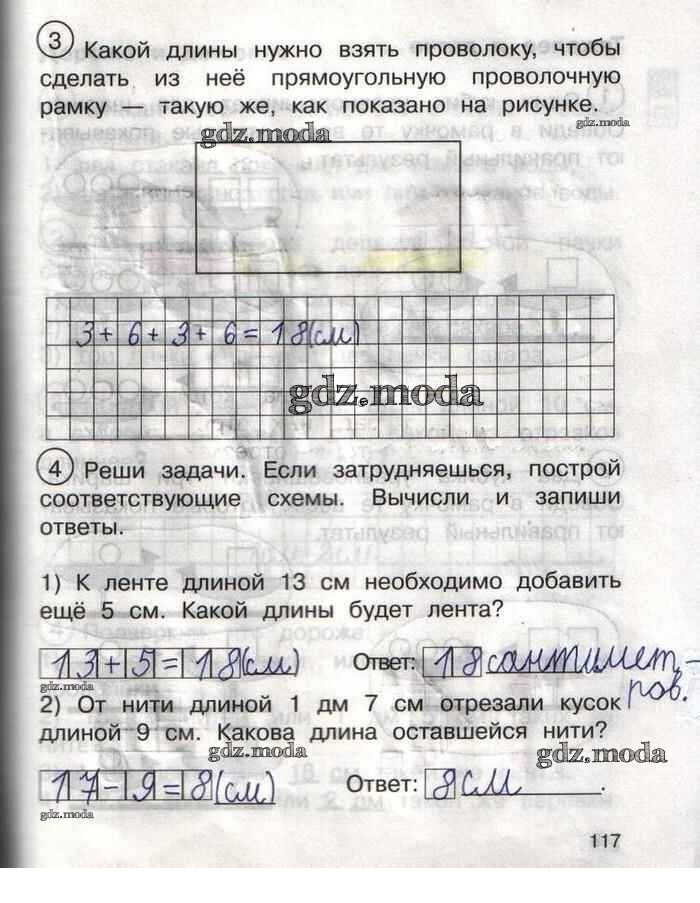 3 Какой длины нужно взять проволоку, чтобы
сделать из неё прямоугольную проволочную
рамку — такую же, как показано на рисунке.
gdz.moda
gdz.moda
3+6+3+6=18(см)
gdz.moda
4 Реши задачи. Если затрудняешься, построй
соответствующие схемы. Вычисли и запиши
ответы.
1) К ленте длиной 13 см необходимо добавить
ещё 5 см. Какой длины будет лента?
13+5=18(см) Ответ: 18 сантимет-
ров.
gdz.moda
2) От нити длиной 1 дм 7 см отрезали кусок
длиной 9 см. Какова длина оставшейся нити?
gdz.moda
gdz.moda
17-9=8(см) Ответ: 8 см.
gdz.moda
117